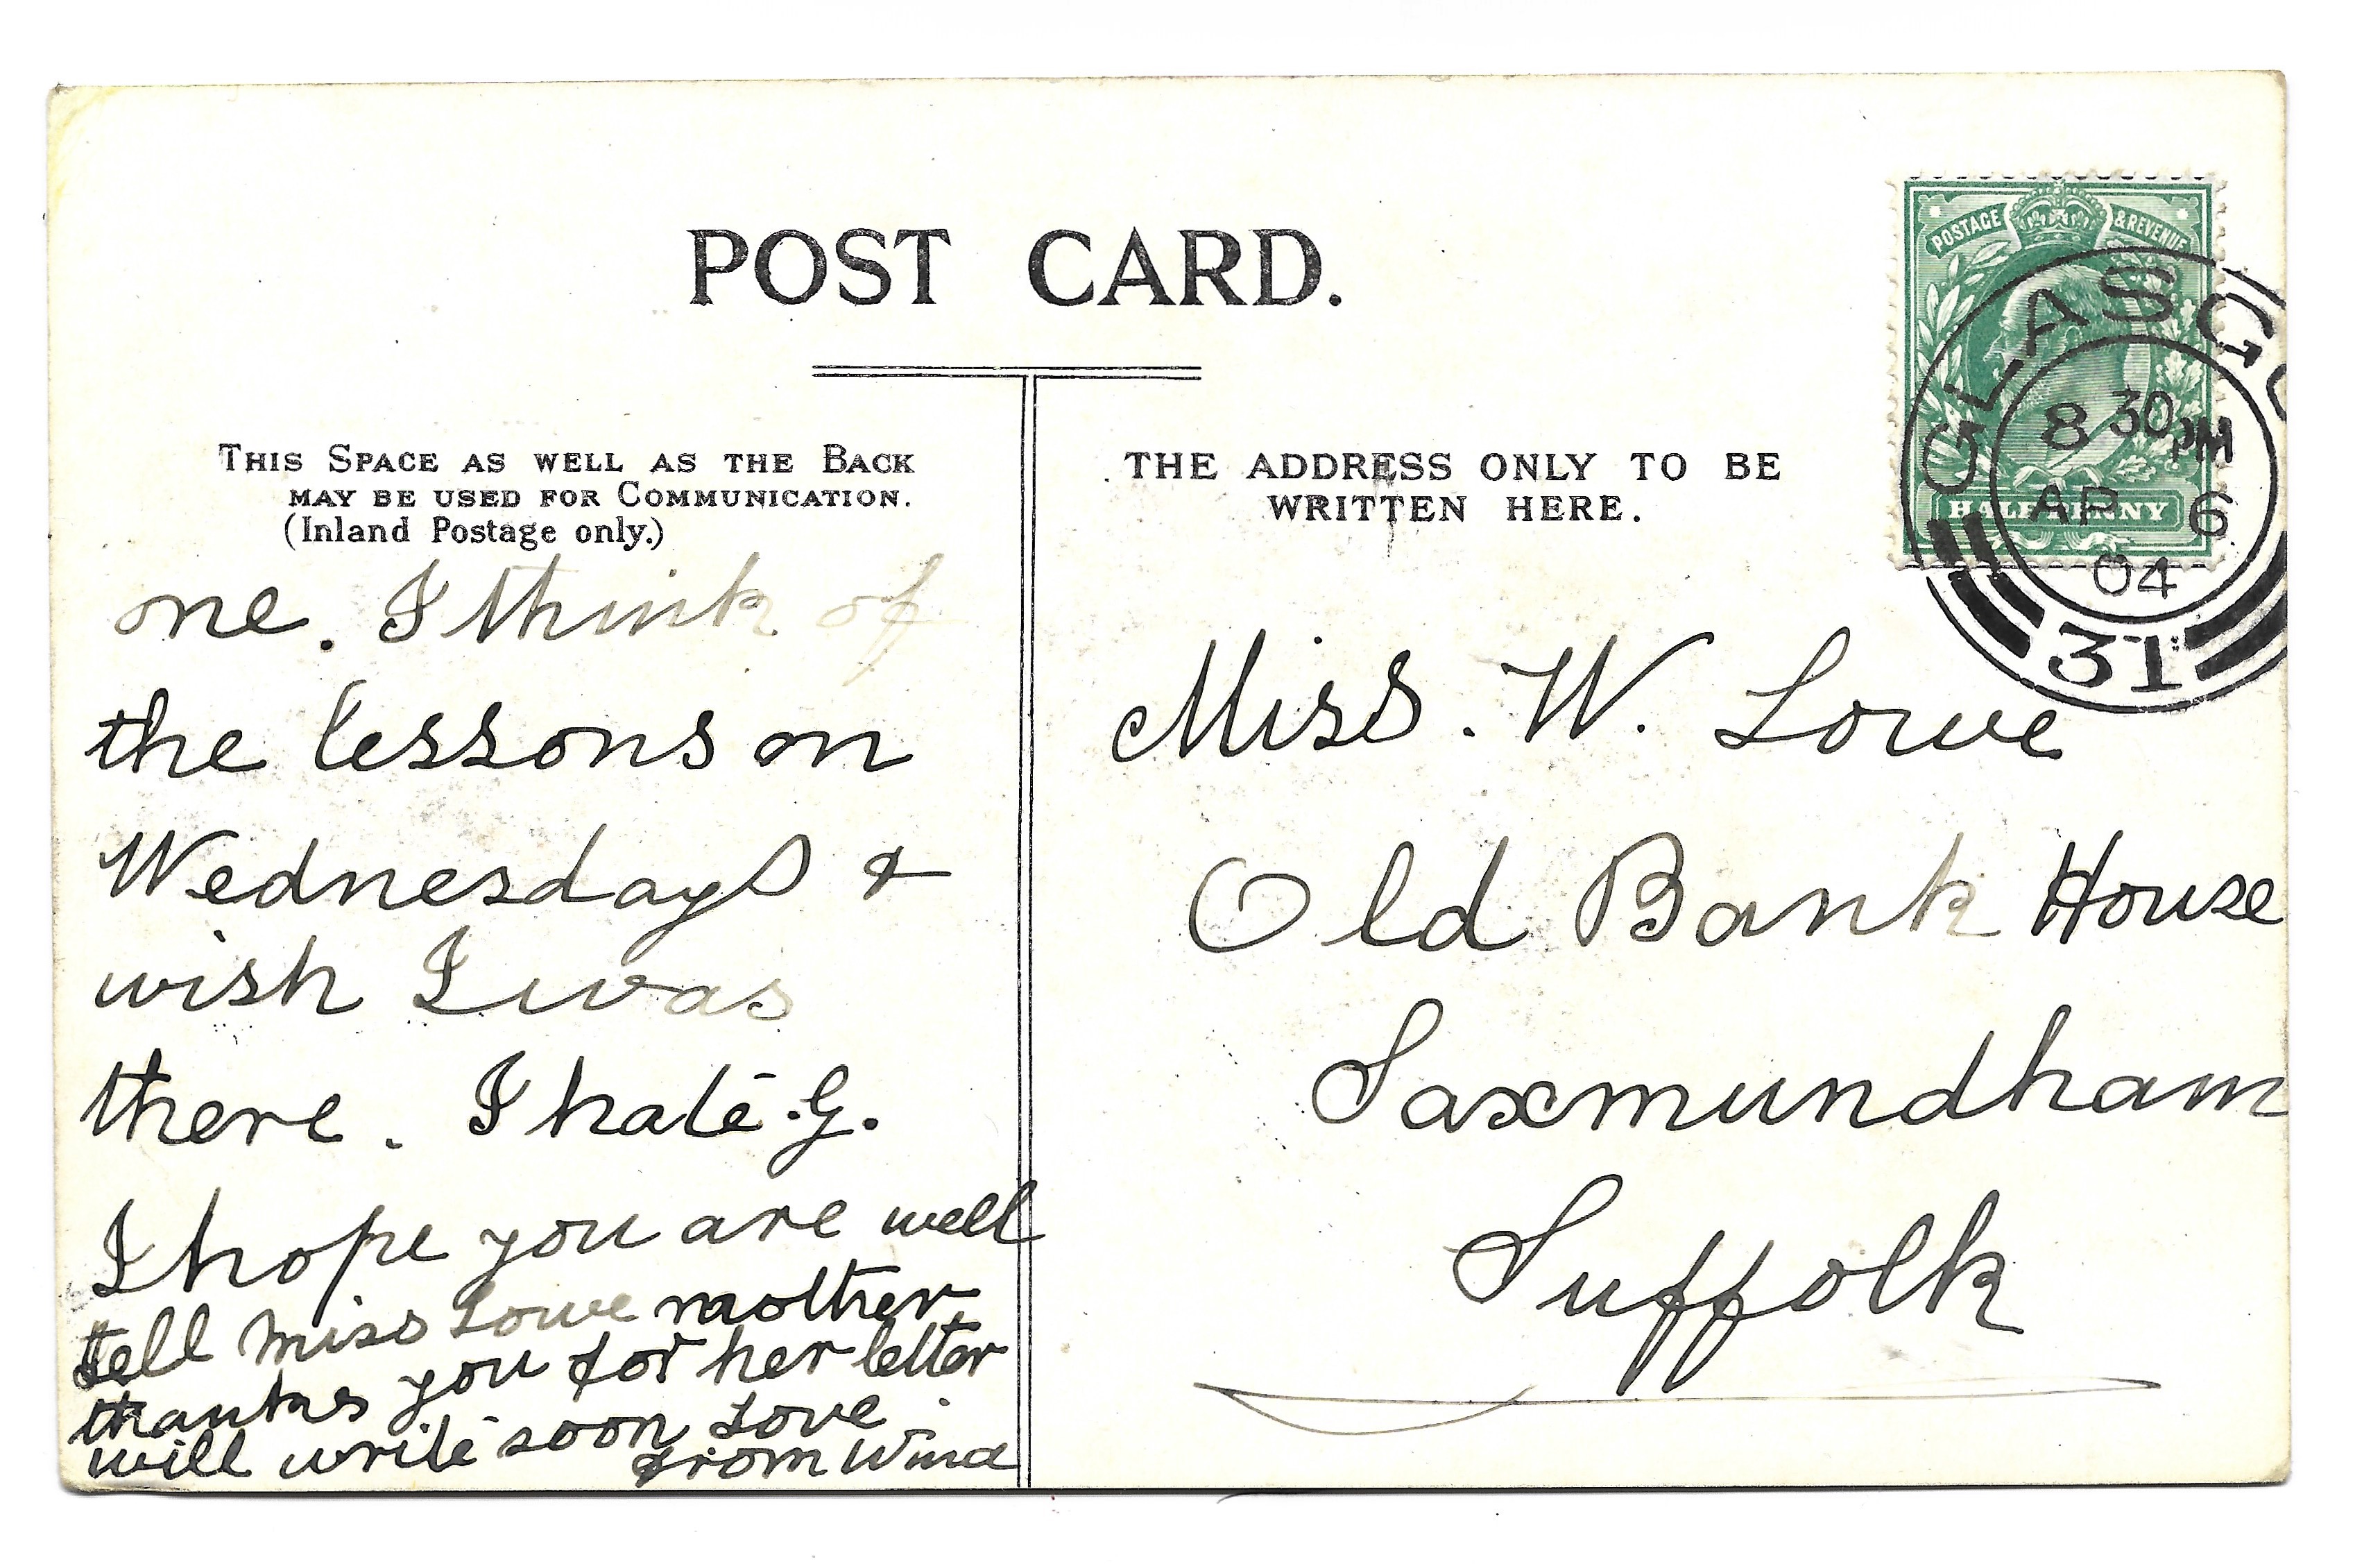 POST CARD.
THIS SPACE AS WELL AS THE BACK
MAY BE USED FOR COMMUNICATION.
(Inland Postage only.)
one. I think of
the lessons on
Wednesdays &
wish I was
there. I hate G.
I hope you are well
tell miss Lowe mother
thanks you for her letter
will write soon Love
from Wina
THE ADDRESS ONLY TO BE
WRITTEN HERE.
Miss. W. Lowe
Old Bank House
Saxmundham
Suffolk
POSTAGE & REVENUE
HALFPENNY
GLASGO
8 30 PM
AP 6
04
31